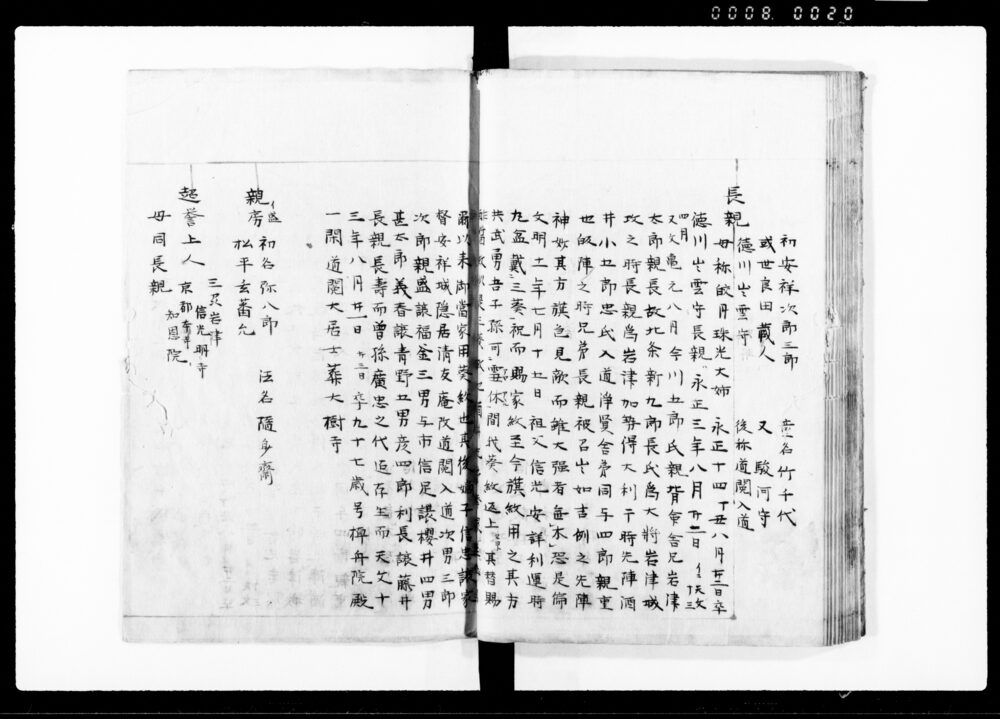 0008. 0020
長親
初安祥次郎三郎　童名竹千代
或世良田蔵人　又駿河守
徳川出雲守　後称道閲入道
母称皎月珠光大姉　永正十四丁丑八月廿二日卒
徳川出雲守長親永正三年八月廿二日
四月
又文亀元八月今川五郎氏親背舎兄岩津
太郎親長故北条新九郎長氏為大将岩津城
攻之時長親為岩津加勢得大利干時先陣酒
井小五郎忠氏入道浄賢舎弟同与四郎親重
也皈陣之時兄弟長親被召出如吉例之先陣
神妙其方旗色見敵而雖大强者毎不恐是偏
文明十一年七月十五日祖父信光安詳利運時
九盃戴三葵祝而賜家紋至今旗紋用之其方
共武勇吾子孫可
爾以来御當家用葵紋也其後嫡子信忠譲家
督安祥城隠居清友庵改道閲入道次男三郎
次郎親盛譲福釜三男与市信定譲櫻井四男
甚太郎義春譲青野五男彦四郎利長譲藤井
長親長壽而曽孫廣忠之代迄存生而天文十
三年八月廿一日　廿二日　卒九十七歳号棹舟院殿
一閑道閲大居士葬大樹寺
親房
イ盛
初名弥八郎　法名隨身齋
松平玄蕃允
超誉上人
三州岩津
信光明寺
京都
知恩院
母同長親